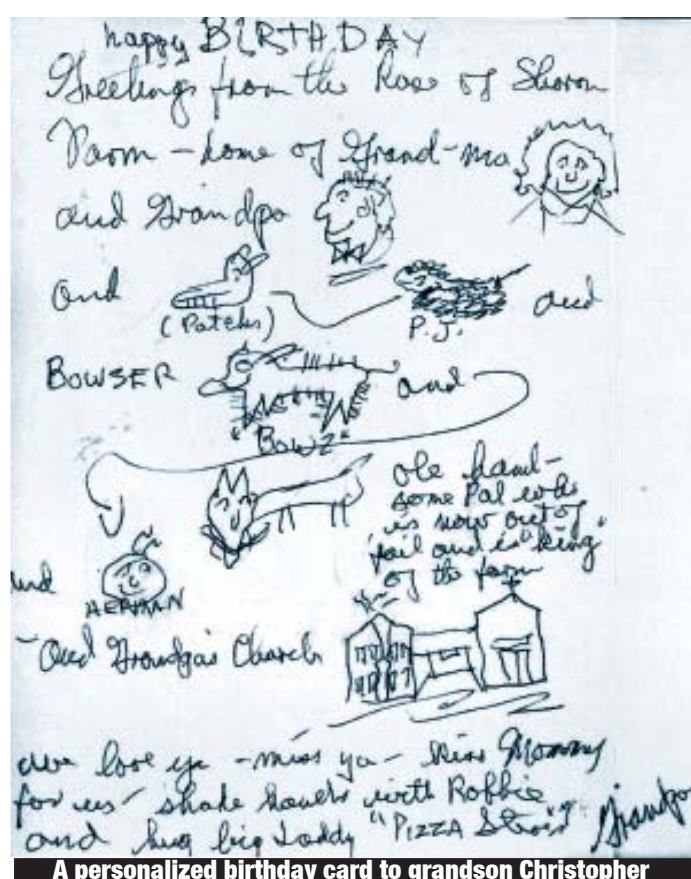 happy BIRTHDAY
Greetings from the Rose of Sharon
Farm - home of Grand-ma
and Grandpa
and (Patches) P.J. and
BOWSER "Bowz" and
ole hand-
some Pal who
is now out of
jail and is "king"
of the farm
and HERMAN
- and Grandpa's Church
we love ya - miss ya - kiss Mommy
for us - shake hands with Robbie
and hug big Daddy "PIZZA Grandpa
A personalized birthday card to grandson Christopher